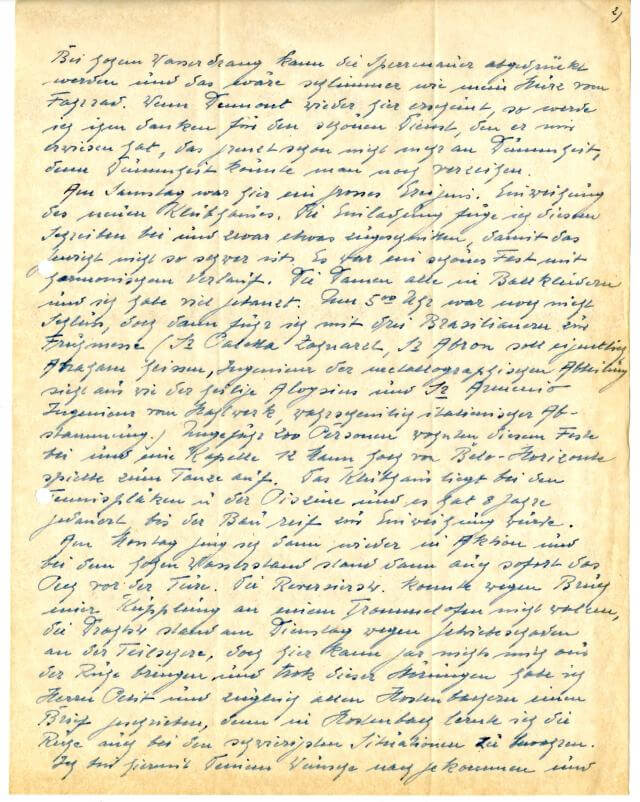 2)
Bei hohem Wasserdrang kann die Sperrmauer abgedrückt
werden und das wäre schlimmer wie mein Sturz vom
Fahrrad. Wenn Dumont wieder hier erscheint, so werde
ich ihm danken für den schönen Dienst, den er mir
erwiesen hat, das grenzt schon nicht mehr an Dummheit,
denn Dummheit könnte man noch verzeihen.
Am Samstag war hier ein grosses Ereignis. Einweihung
des neuen Klubhauses. Die Einladung füge ich diesem
Schreiben bei und zwar etwas zugeschnitten, damit das
nicht so schwer ist. Es war ein schönes Fest mit
harmonischem Verlauf. Die Damen alle in Ballkleidern
und ich habe viel getanzt. Um 5.00 Uhr war noch nicht
Schluss, doch dann fuhr ich mit drei Brasilianern zur
Frühmesse (Sr Abron soll eigentlich
Abraham heissen, Ingenieur der metallographischen Abteilung
sieht aus wie der heilige Aloysius und Sr Armenio
Ingenieur vom Stahlwerk, wahrscheinlich italienischer Ab-
stammung.) Ungefähr 200 Personen wohnten diesem Feste
bei und eine Kapelle 12 Mann hoch von Belo-Horizonte
spielte zum Tanze auf. Das Klubhaus liegt bei den
Tennisplätzen u der Piscine und es hat 8 Jahre
gedauert bis der Bau reif zur Einweihung wurde.
Am Montag ging es dann wieder in Aktion und
bei dem hohen Wasserstand stand dann auch sofort das
Pech vor der Türe. Die Reversierstr. konnte wegen Bruch
einer Kupplung an einem Trommelofen nicht walzen,
die Drahtstr stand am Dienstag wegen Getriebeschaden
an der Teilschere, doch hier kann gar nichts mich aus
der Ruhe bringen und trotz dieser Störungen habe ich
Herrn Petit und zugleich allen Hostenbachern einen
Brief geschrieben, denn in Hostenbach lernte ich die
Ruhe auch bei den schwierigsten Situationen zu bewahren.
Ich bin hiermit Deinem Wunsche nachgekommen und